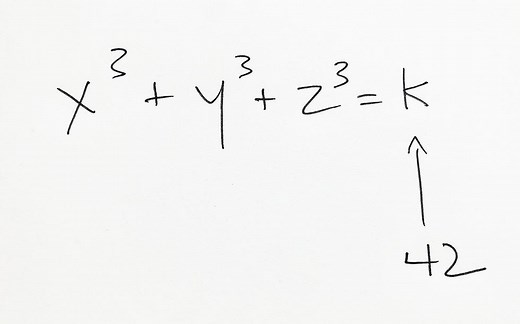 x³ + y³ + z³ = k
↑
42